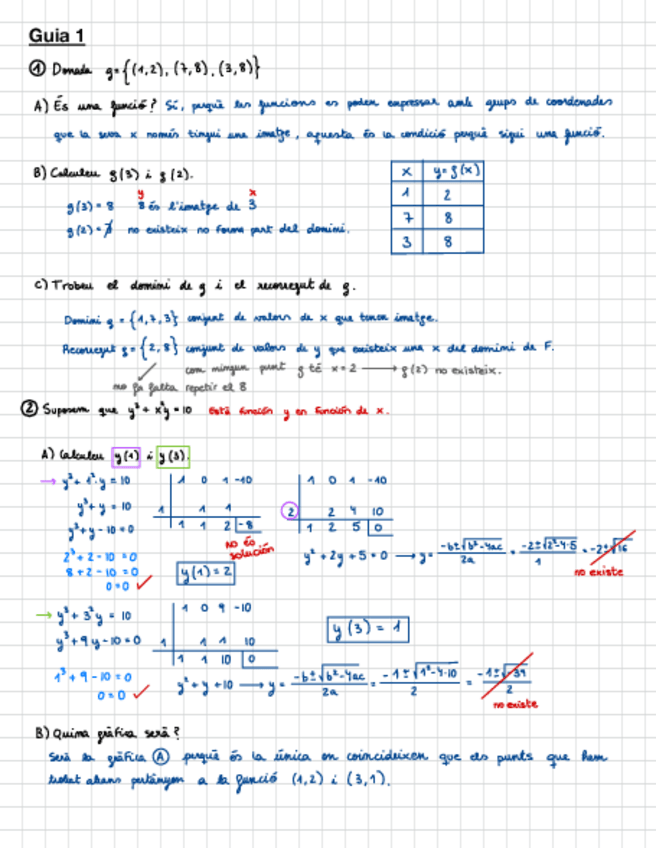 Guia 1
① Donada g={(1,2), (7,8), (3,8)}
A) És una funció? Sí, perquè les funcions es poden expressar amb grups de coordenades
que la seva x només tingui una imatge, aquesta és la condició perquè sigui una funció.
B) Calculeu g(3) i g(2).
y x
g(3) = 8 8 és l'imatge de 3
g(2) = no existeix no forma part del domini.
x y=g(x)
1 2
7 8
3 8
C) Trobeu el domini de g i el recorregut de g.
Domini g = {1,7,3} conjunt de valors de x que tenen imatge.
Recorregut g = {2,8} conjunt de valors de y que existeix una x del domini de F.
com ningun punt g té x=2 → g(2) no existeix.
no fa falta repetir el 8
② Suposem que y³ + x²y = 10 Está función y en función de x.
A) Calculeu y(1) i y(3).
→ y³ + 1²·y = 10
y³ + y = 10
y³ + y - 10 = 0
2³ + 2 - 10 = 0
8 + 2 - 10 = 0
0 = 0 ✓
1 0 1 -10
1 1 1
1 1 2 -8
no és solución
y(1) = 2
1 0 1 -10
2 2 4 10
1 2 5 0
y² + 2y + 5 = 0 → y = -b±√b²-4ac / 2a = -2±√2²-4·5 / 1 = -2±√16
no existe
→ y³ + 3²y = 10
y³ + 9y - 10 = 0
1³ + 9 - 10 = 0
0 = 0 ✓
1 0 9 -10
1 1 1 10
1 1 10 0
y(3) = 1
y² + y + 10 → y = -b±√b²-4ac / 2a = -1±√1²-4·10 / 2 = -1±√-39 / 2
no existe
B) Quina gràfica serà?
Serà la gràfica Ⓐ perquè és la única en coincideixen que els punts que hem
trobat abans pertànyen a la funció (1,2) i (3,1).